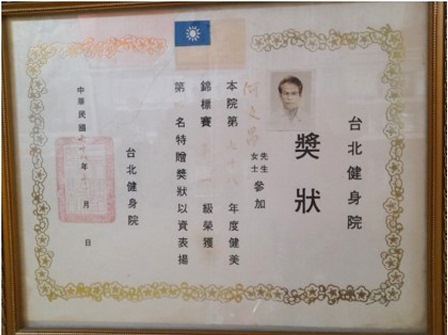 台北健身院
獎狀
何文昌 先生
女士 參加
本院第七十八年度健美
錦標賽 級榮獲
第 名特贈獎狀以資表揚
台北健身院
中華民國 年 月 日